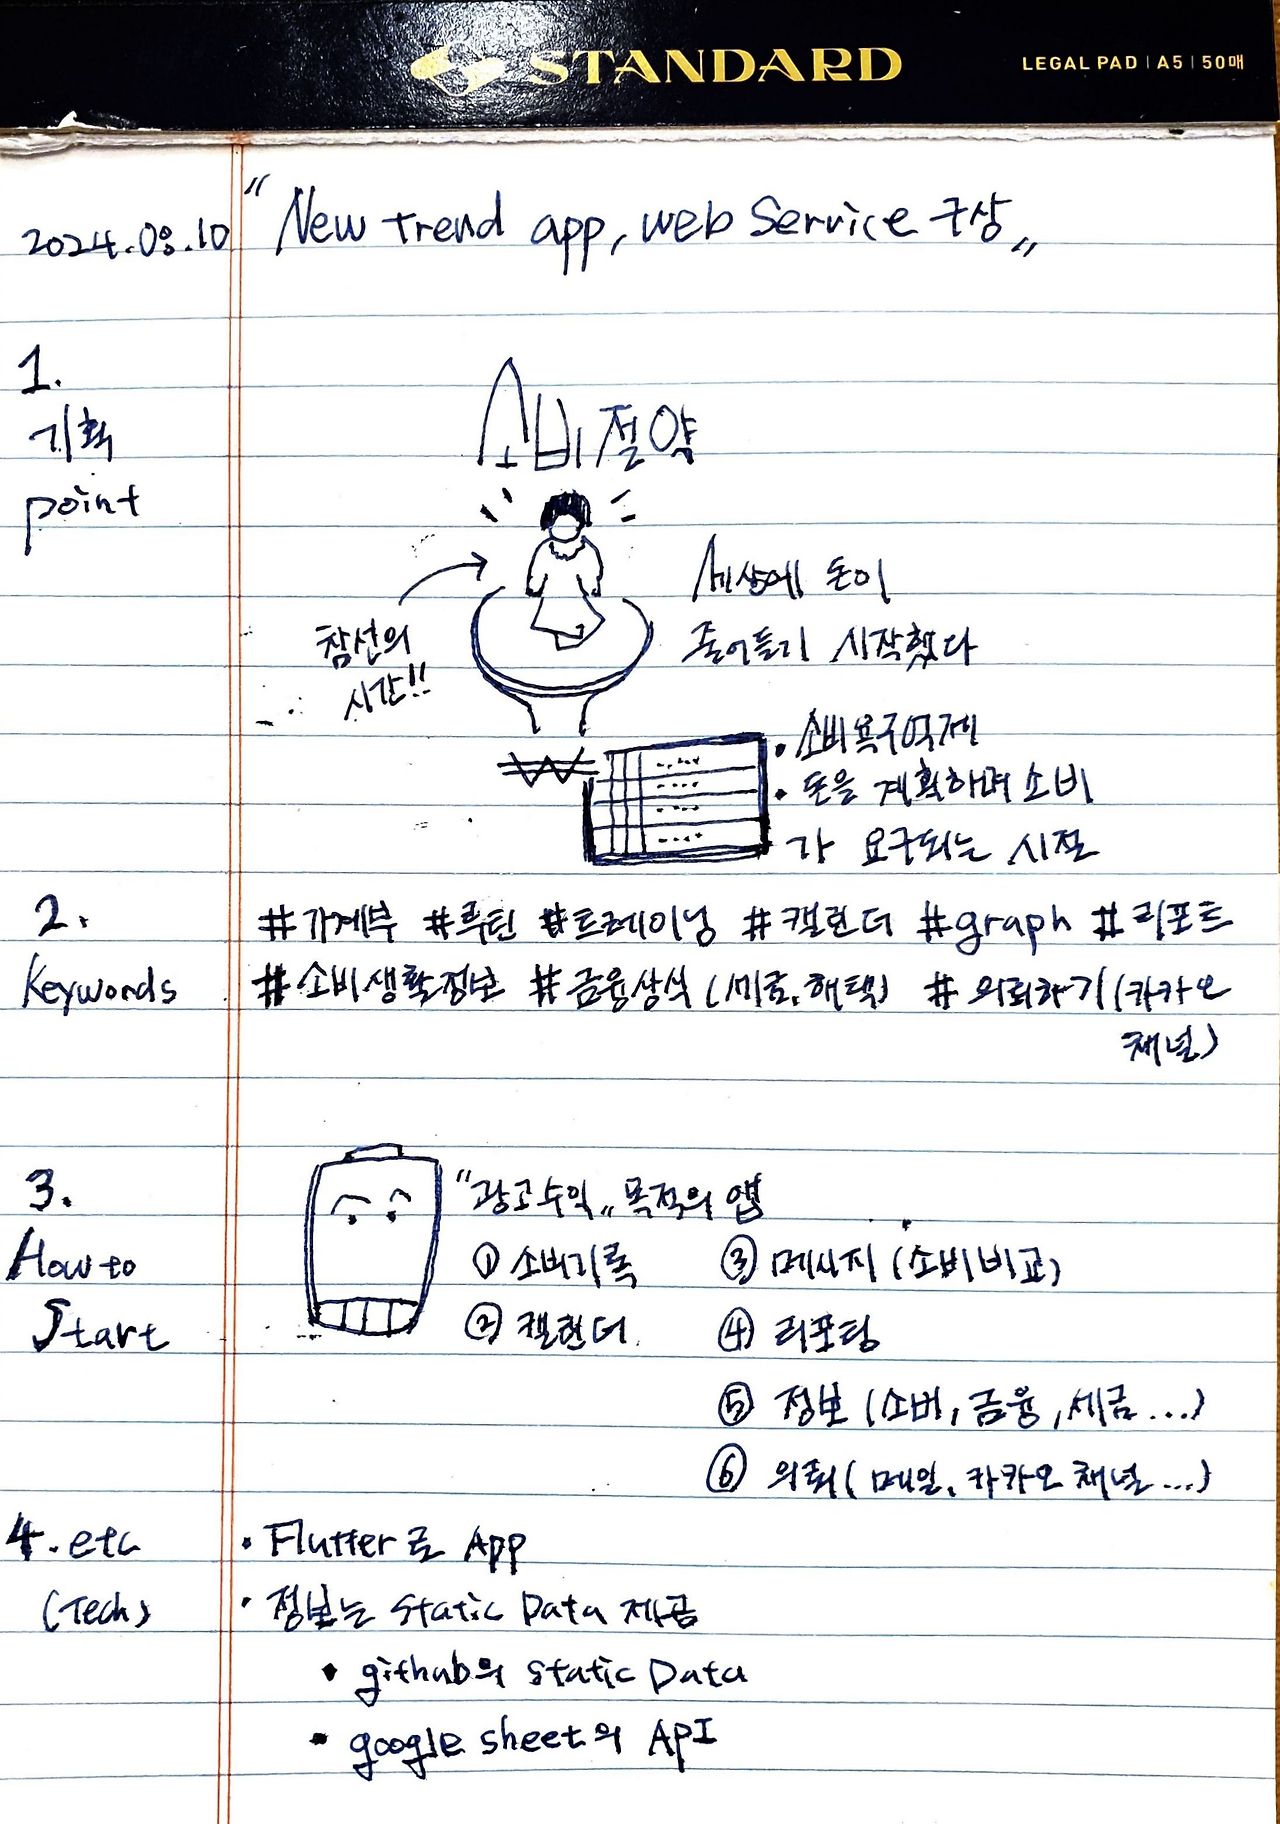 STANDARD
LEGAL PAD | A5 | 50매
2024.08.10
"New trend app, web Service 구상"
1.
기획
point
소비절약
참선의
시간!!
세상에 돈이
줄어들기 시작했다
₩
· 소비욕구억제
· 돈을 계획하며 소비
가 요구되는 시점
2.
Keywords
#가계부 #루틴 #트레이닝 #캘린더 #graph #리포트
#소비생활정보 #금융상식(세금, 혜택) #의뢰하기(카카오
채널)
3.
How to
Start
"광고수익" 목적의 앱
① 소비기록
② 캘린더
③ 메시지 (소비비교)
④ 리포팅
⑤ 정보 (소비, 금융, 세금...)
⑥ 의뢰 (메일, 카카오 채널...)
4. etc
(Tech)
· Flutter로 App
· 정보는 Static Data 제공
· github의 Static Data
· google sheet의 API